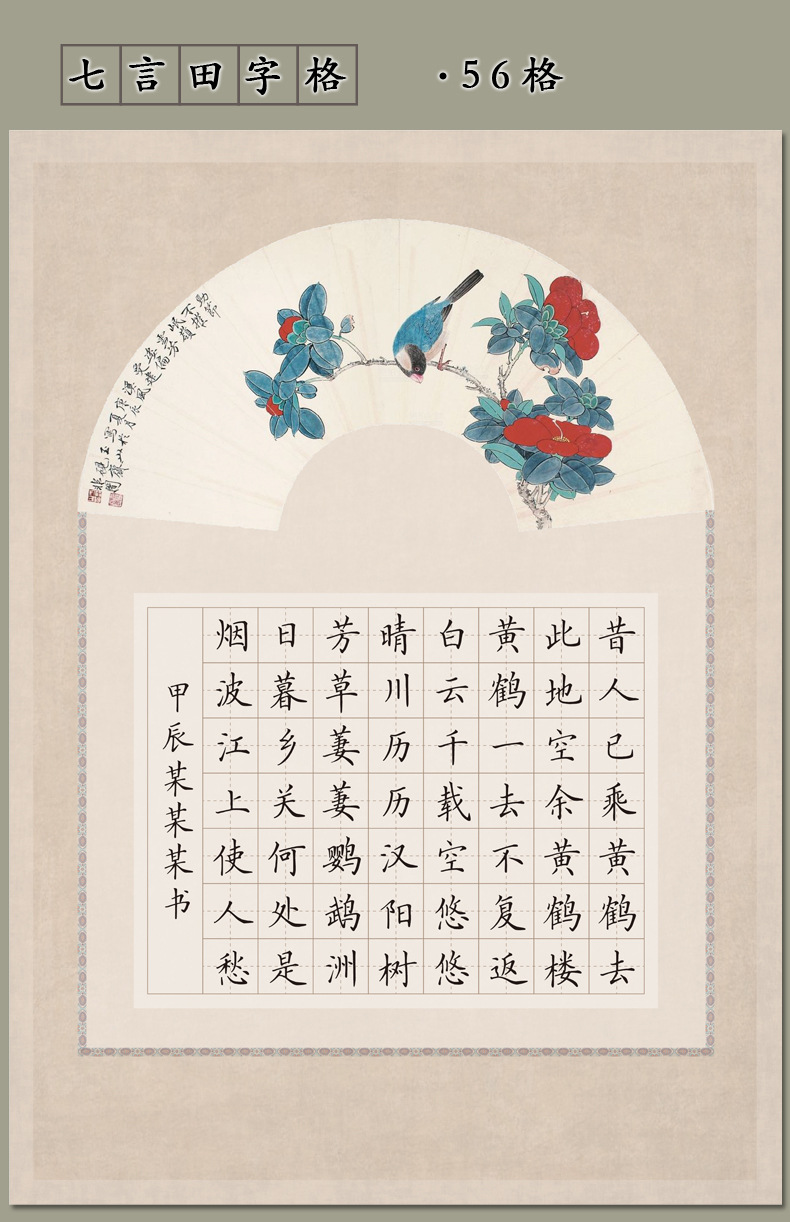 七言田字格 ·56格
昔人已乘黄鹤去
此地空余黄鹤楼
黄鹤一去不复返
白云千载空悠悠
晴川历历汉阳树
芳草萋萋鹦鹉洲
日暮乡关何处是
烟波江上使人愁
甲辰某某某书